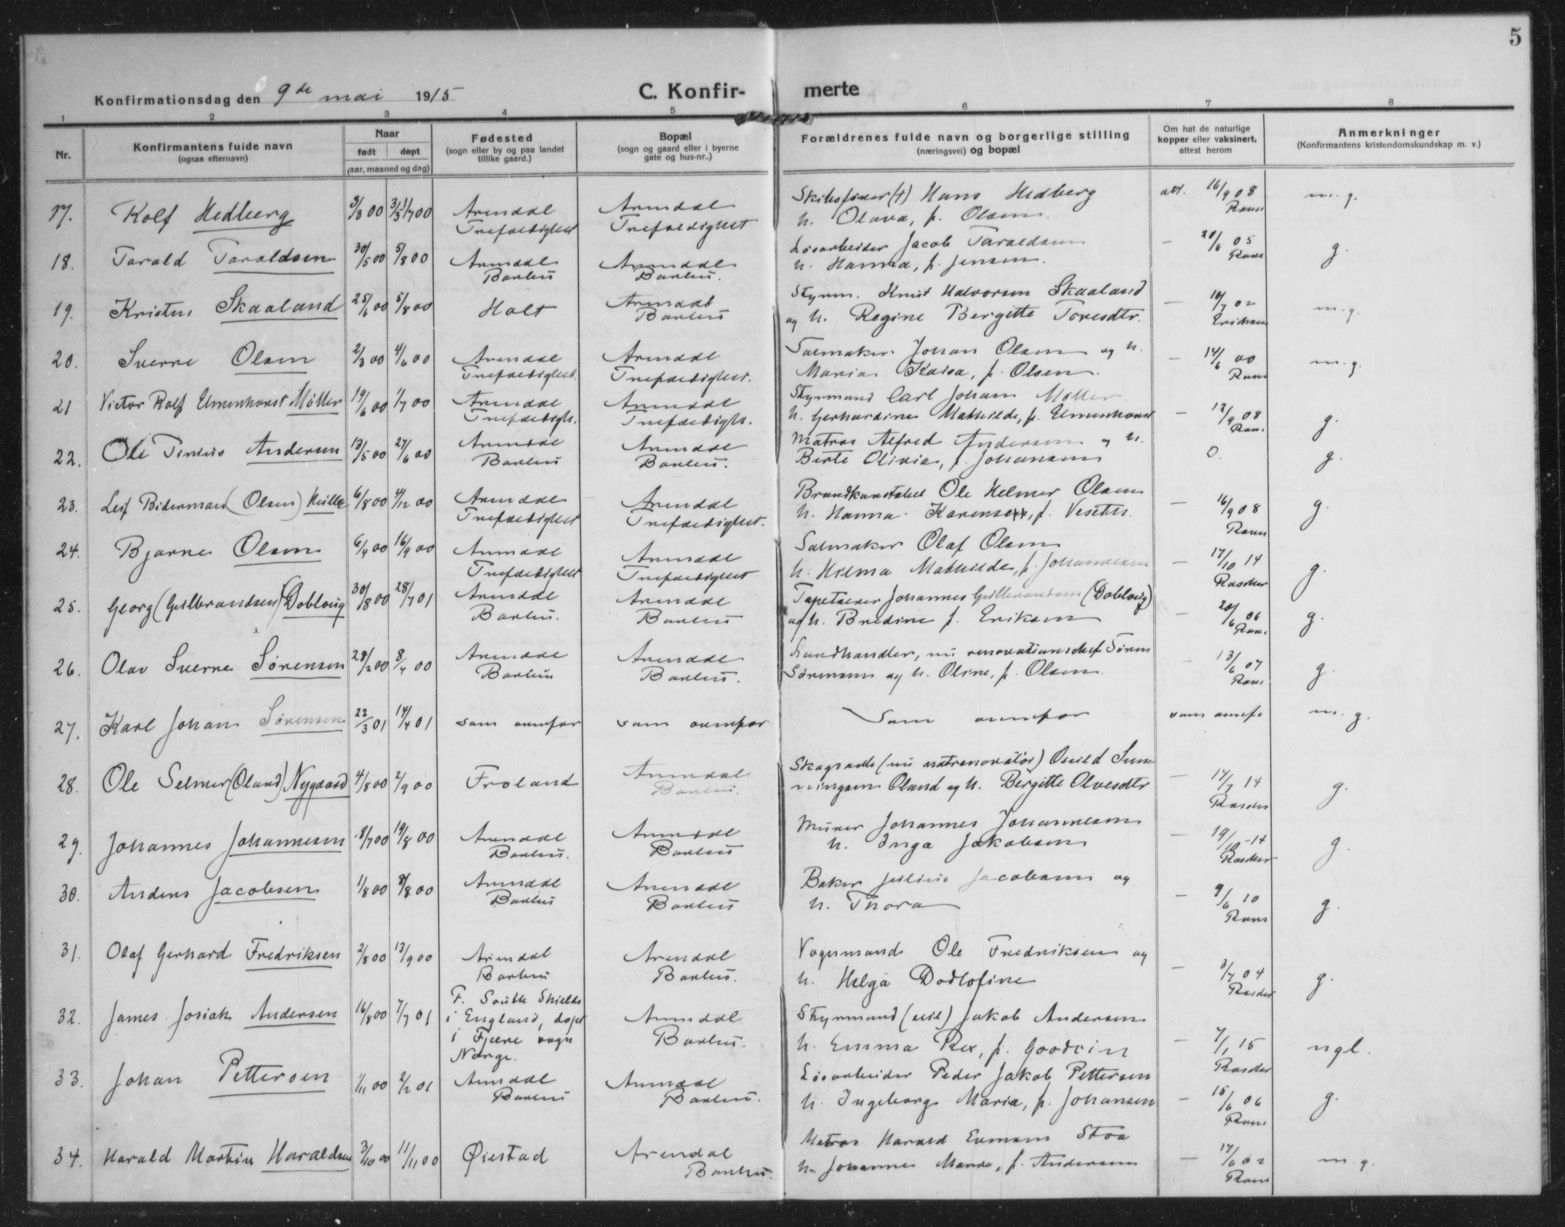 5
Konfirmationsdag den 9de mai 1915
C. Konfirmerte
1 2 3 4 5 6 7 8
Nr.
Konfirmantens fulde navn
(ogsaa efternavn)
Naar
født døpt
(aar, maaned og dag)
Fødested
(sogn eller by og paa landet
tillike gaard.)
Bopæl
(sogn og gaard eller i byerne
gate og hus-nr.)
Forældrenes fulde navn og borgerlige stilling
(næringsvei) og bopæl
Om hat de naturlige
kopper eller vaksinert,
attest herom
Anmerkninger
(Konfirmantens kristendomskundskap m. v.)
17. Rolf Hedberg 3/3 00 Arendal Arendal Hans Hedberg att. 16/9 08 m.g.
Trefoldighet Trefoldighet h. Olava, f. Olsen
18. Tarald Taraldsen 30/5 00 5/8 00 Arendal Arendal Løsarbeider Jacob Taraldsen — 20/6 05 g.
Barbu Barbu. h. Hanna, f. Jensen.
19. Skaaland 25/6 00 5/8 00 Holt Arendal Styrm. Knut Halvorsen Skaaland — 02 m.g.
Barbu og h. Regine Bergitte Toresdtr. Eriksen
20. Sverre Olsen 2/3 00 4/6 00 Arendal Arendal Seilmaker Johan Olsen og h. — 14/6 00 m.g.
Trefoldighet. Trefoldighet. Maria Kaisa, f. Olsen.
21 Victor Rolf Elmenhorst Møller 19/6 00 1/7 00 Arendal Arendal Styrmand Carl Johan Møller — 12/9 08 g.
Trefoldigh. Trefoldigh. h. Gerhardine Mathilde, f. Elmenhorst
22. Ole Andersen 13/5 00 24/6 00 Arendal Arendal Matros Alfred Andersen og h. 0. g.
Barbu Barbu. Berte Olivia, f. Johansen
23. Leif Biderman (Olsen) 6/8 00 4/12 00 Arendal Arendal Brandkonstabel Ole Helmer Olsen — 16/9 08 g.
Trefoldighet Trefoldighet. h. Hanna
24. Bjarne Olsen 6/4 00 16/9 00 Arendal Arendal Seilmaker Olaf Olsen — 17/10 14 g.
Trefoldighet Trefoldighet h. Hilma Mathilde, f. Johannessen
25. Georg (Gulbrandsen) Dobloug 30/8 00 28/7 01 Arendal Arendal Tapetserer Johannes Gulbrandsen (Dobloug) — 20/6 06 g.
Barbu. Barbu og h. Bredine f. Eriksen
26. Olav Sverre Sørensen 28/2 00 8/4 00 Arendal Arendal Landhandler, nu renovationschef Søren — 13/6 07 g.
Barbu Barbu. Sørensen og h. Oline, f. Olsen.
27. Karl Johan Sørensen 22/3 01 14/4 01 som ovenfor som ovenfor Som ovenfor som ovenfor m. g.
28. Ole Selmer (Oland) Nygaard 4/8 00 2/9 00 Froland Arendal — 17/7 14 g.
Barbu. Oland og h. Bergitte Olvesdtr
29. Johannes Johannesen 8/7 00 19/8 00 Arendal Arendal Murer Johannes Johannesen — 19/10 -14 g.
Barbu. Barbu h. Inga Jakobsen
30. Anders Jacobsen 1/8 00 00 Arendal Arendal Baker Julius Jacobsen og — 9/6 10 g.
Barbu Barbu h. Thora
31. Olaf Gerhard Fredriksen 2/8 00 13/9 00 Arendal Arendal Vognmand Ole Fredriksen og — 3/7 04 g.
Barbu Barbu. h. Helga Dorlofine
32. James Josiah Andersen 16/8 00 7/7 01 F. South Shields Arendal Styrmand Jakob Andersen
i England, døpt Barbu. h. Emma Rex, f. Goodwin — 7/1 15 ngl.
i Fjære sogn
Norge.
33. Johan Pettersen 1/11 00 2/2 01 Arendal Arendal Løsarbeider Peder Jakob Pettersen — 15/6 06 g.
Barbu Barbu. h. Ingeborg Maria, f. Johansen
34. Harald Martin Haraldsen 3/10 00 11/11 00 Øiestad Arendal Matros Harald — 17/6 02 m.g.
Barbu. h. Johannes Maria, f. Andersen